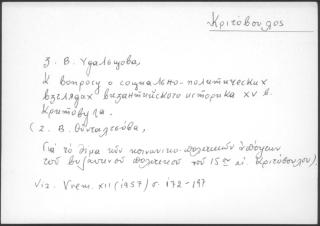 Κριτόβουλος
З. В. Удальцова,
К вопросу о социально-политических
взглядах византийского историка XV в.
Критовула.
(Ζ. Β. Οὐνταλτσόβα,
Γιὰ τὸ θέμα τῶν κοινωνικο-πολιτικῶν ἀπόψεων
τοῦ βυζαντινοῦ πολιτικοῦ τοῦ 15ου αἰ. Κριτόβουλου).
Viz. Vrem. XII (1957) σ. 172-197